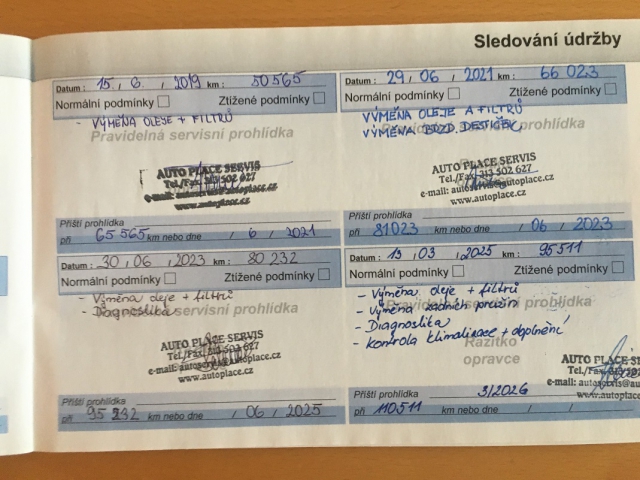 Sledování údržby
Datum : 15 , 6. , 2019 km : 50 565
Normální podmínky Ztížené podmínky
- VÝMĚNA OLEJE + FILTRŮ
Pravidelná servisní prohlídka
AUTO PLACE SERVIS
Tel./Fax: 313 502 627
www.autoplace.cz
Příští prohlídka
při 65 565 km nebo dne / 6 / 2021
Datum : 29 , 06 , 2021 km : 66 023
Normální podmínky Ztížené podmínky
VÝMĚNA OLEJE A FILTRŮ
VÝMĚNA BRZD. DESTIČEK
AUTO PLACE SERVIS
Tel./Fax: 313 502 627
e-mail: autoservis@autoplace.cz
www.autoplace.cz
Příští prohlídka
při 81023 km nebo dne / 06 / 2023
Datum : 30 , 06 , 2023 km : 80 232
Normální podmínky Ztížené podmínky
- Výměna oleje + filtrů
- Diagnostika
servisní prohlídka
AUTO PLACE SERVIS
Tel./Fax: 313 502 627
www.autoplace.cz
Příští prohlídka
při 95 232 km nebo dne / 06 / 2025
Datum : 13 , 03 , 2025 km : 95 511
Normální podmínky Ztížené podmínky
- Výměna oleje + filtrů
- Výměna zadních pružin
- Diagnostika
- Kontrola klimatizace + doplnění
Pravidelná servisní prohlídka
Razítko
opravce
AUTO PLACE SE
Tel./Fax: 313 502 6
e-mail: autoservis@au
www.autoplac
Příští prohlídka 3/2026
při 110511 km nebo dne / /